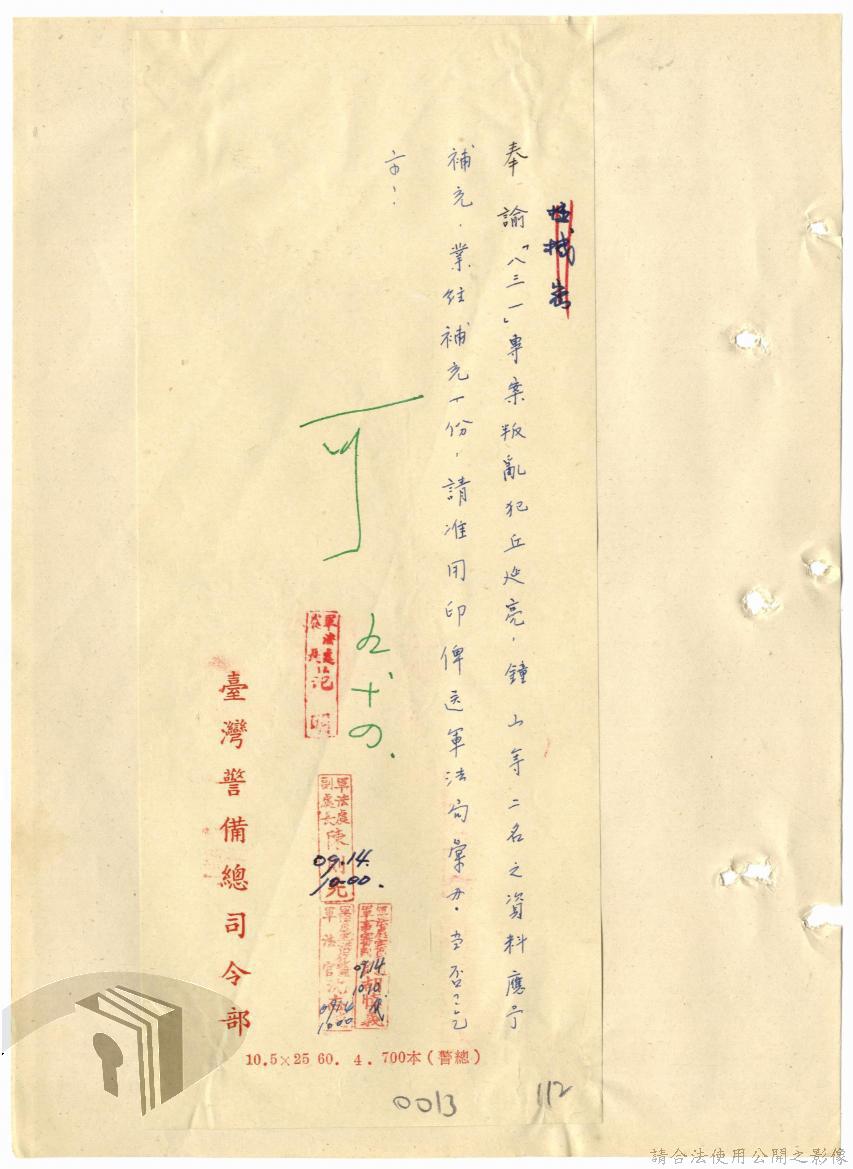 奉諭「八三一」專案叛亂犯丘延亮，鐘山等二名之資料應予
補充，業經補充一份，請准用印俾送軍法局彙办。當否？乞
示！
可
九、十四.
軍法處
處長
范明
軍法處
副處長
陳
09.14.
10.00.
軍法官
09.14
1000
09.14
臺灣警備總司令部
10.5×25 60. 4. 700本(警總)
0013
112
請合法使用公開之影像